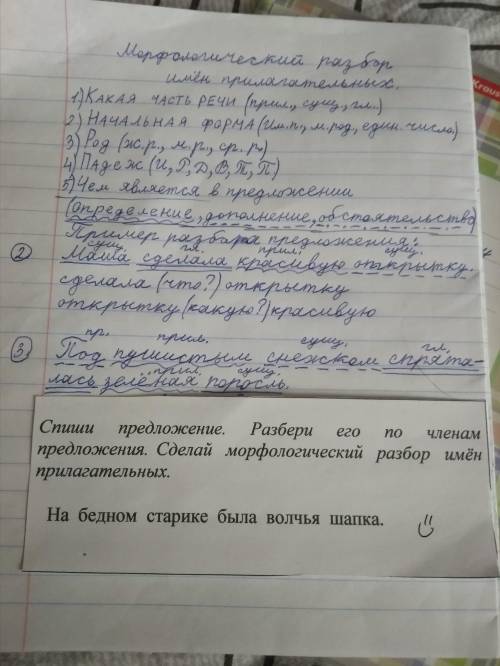 Морфологический разбор
имён прилагательных.
1) Какая часть речи (прил., сущ., гл.)
2) Начальная форма (Им.п., м.род, един. число)
3) Род (ж.р., м.р., ср.р.)
4) Падеж (И, Р, Д, В, П, П)
5) Чем является в предложении
(определение, дополнение, обстоятельство)
Пример разбора предложения:
сущ. гл. прил. сущ.
2 Маша сделала красивую открытку.
сделала (что?) открытку
открытку (какую?) красивую
пр. прил. сущ. гл.
3 Под пушистым снежком спрята-
прил. сущ.
лась зелёная поросль.
Спиши предложение. Разбери его по членам
предложения. Сделай морфологический разбор имён
прилагательных.
На бедном старике была волчья шапка.
Kraus